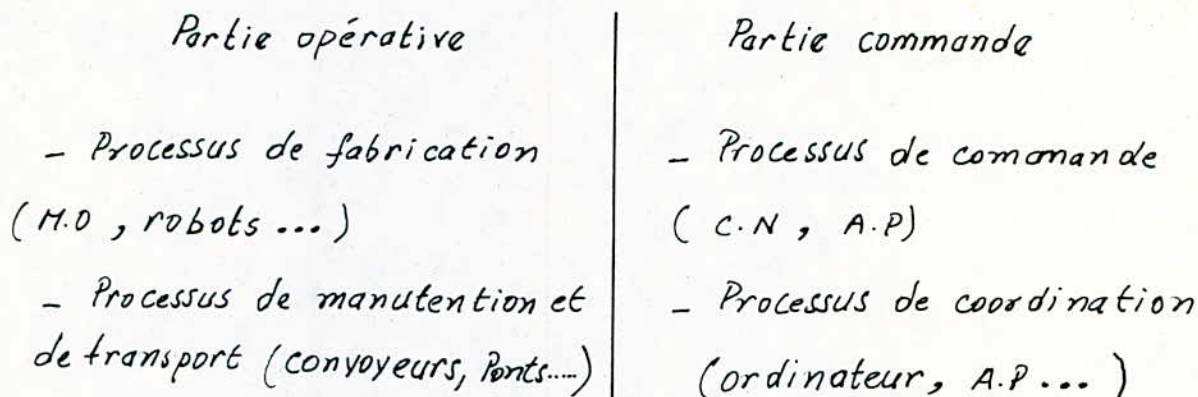 Partie opérative
- Processus de fabrication
(M.O , robots ...)
- Processus de manutention et
de transport (convoyeurs, Ponts.....)
Partie commande
- Processus de commande
( C.N , A.P)
- Processus de coordination
(ordinateur, A.P ... )